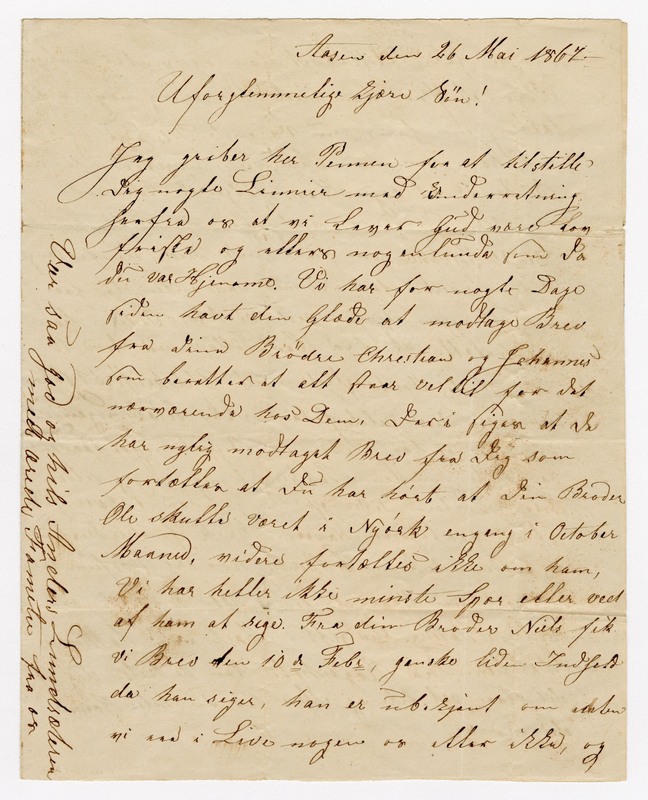 Aasen den 26 Mai 1867
Uforglemmelige kjære Sön!
Jeg griber her Pennen for at tilstille
Dig nogle Linnier med Underretning
herfra os at vi Lever Gud være Lov
friske og ellers nogenlunde som da
du var Hjemme. Vi har for nogle Dage
siden havt den Glæde at modtage Brev
fra dine Brödre Christian og Johannes
som beretter at alt staar vel til for det
nærværende hos Dem, de siger at de
har nylig modtaget Brev fra Dig som
fortæller at Du har hört at Din Broder
Ole skulle været i Nyörk engang i October
Maaned, videre fortælles ikke om ham,
Vi har heller ikke minste Spor eller ved
af ham at sige. Fra din Broder Niels fik
vi Brev den 10de Febr, ganske liden Indhold
da han siger, han er ubekjent om enten
vi ere i Live nogen os eller ikke, og
Vær saa god og hils Anders
med ærede Familie fra os